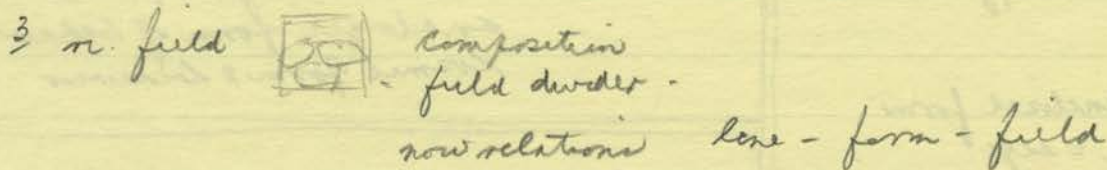 3 n. field composition
field divider -
now relations line - form - field